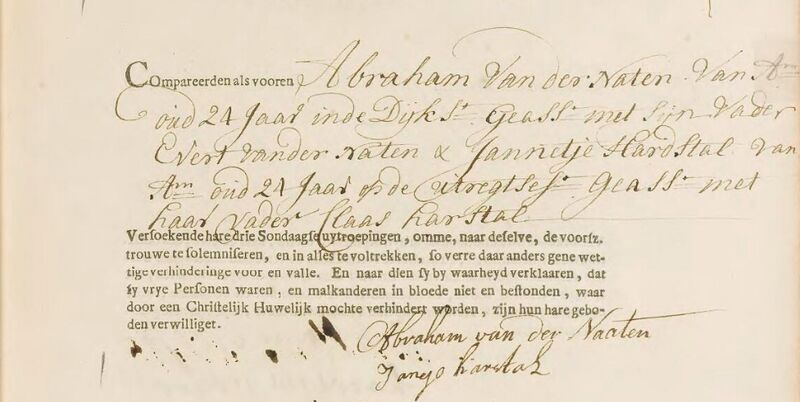 Compareerden als vooren Abraham Van der Naten Van Am
oud 24 Jaar inde Dijkst Geasst met sijn Vader
Evert vander Naten & Jannetje Hardstal van
Am oud 24 Jaar op de uitregtsest Geasst met
haar Vader Claas harstal
Versoekende hare drie Sondaagse uytroepingen, omme, naar deselve, de voorsz.
trouwe te solemniseren, en in alles te voltrekken, so verre daar anders gene wet-
tige verhinderinge voor en valle. En naar dien sy by waarheyd verklaaren, dat
sy vrye Personen waren, en malkanderen in bloede niet en bestonden, waar
door een Christelijk Huwelijk mochte verhindert worden, zijn hun hare gebo-
den verwilliget.
Abraham van der Naaten
Janejo harstal